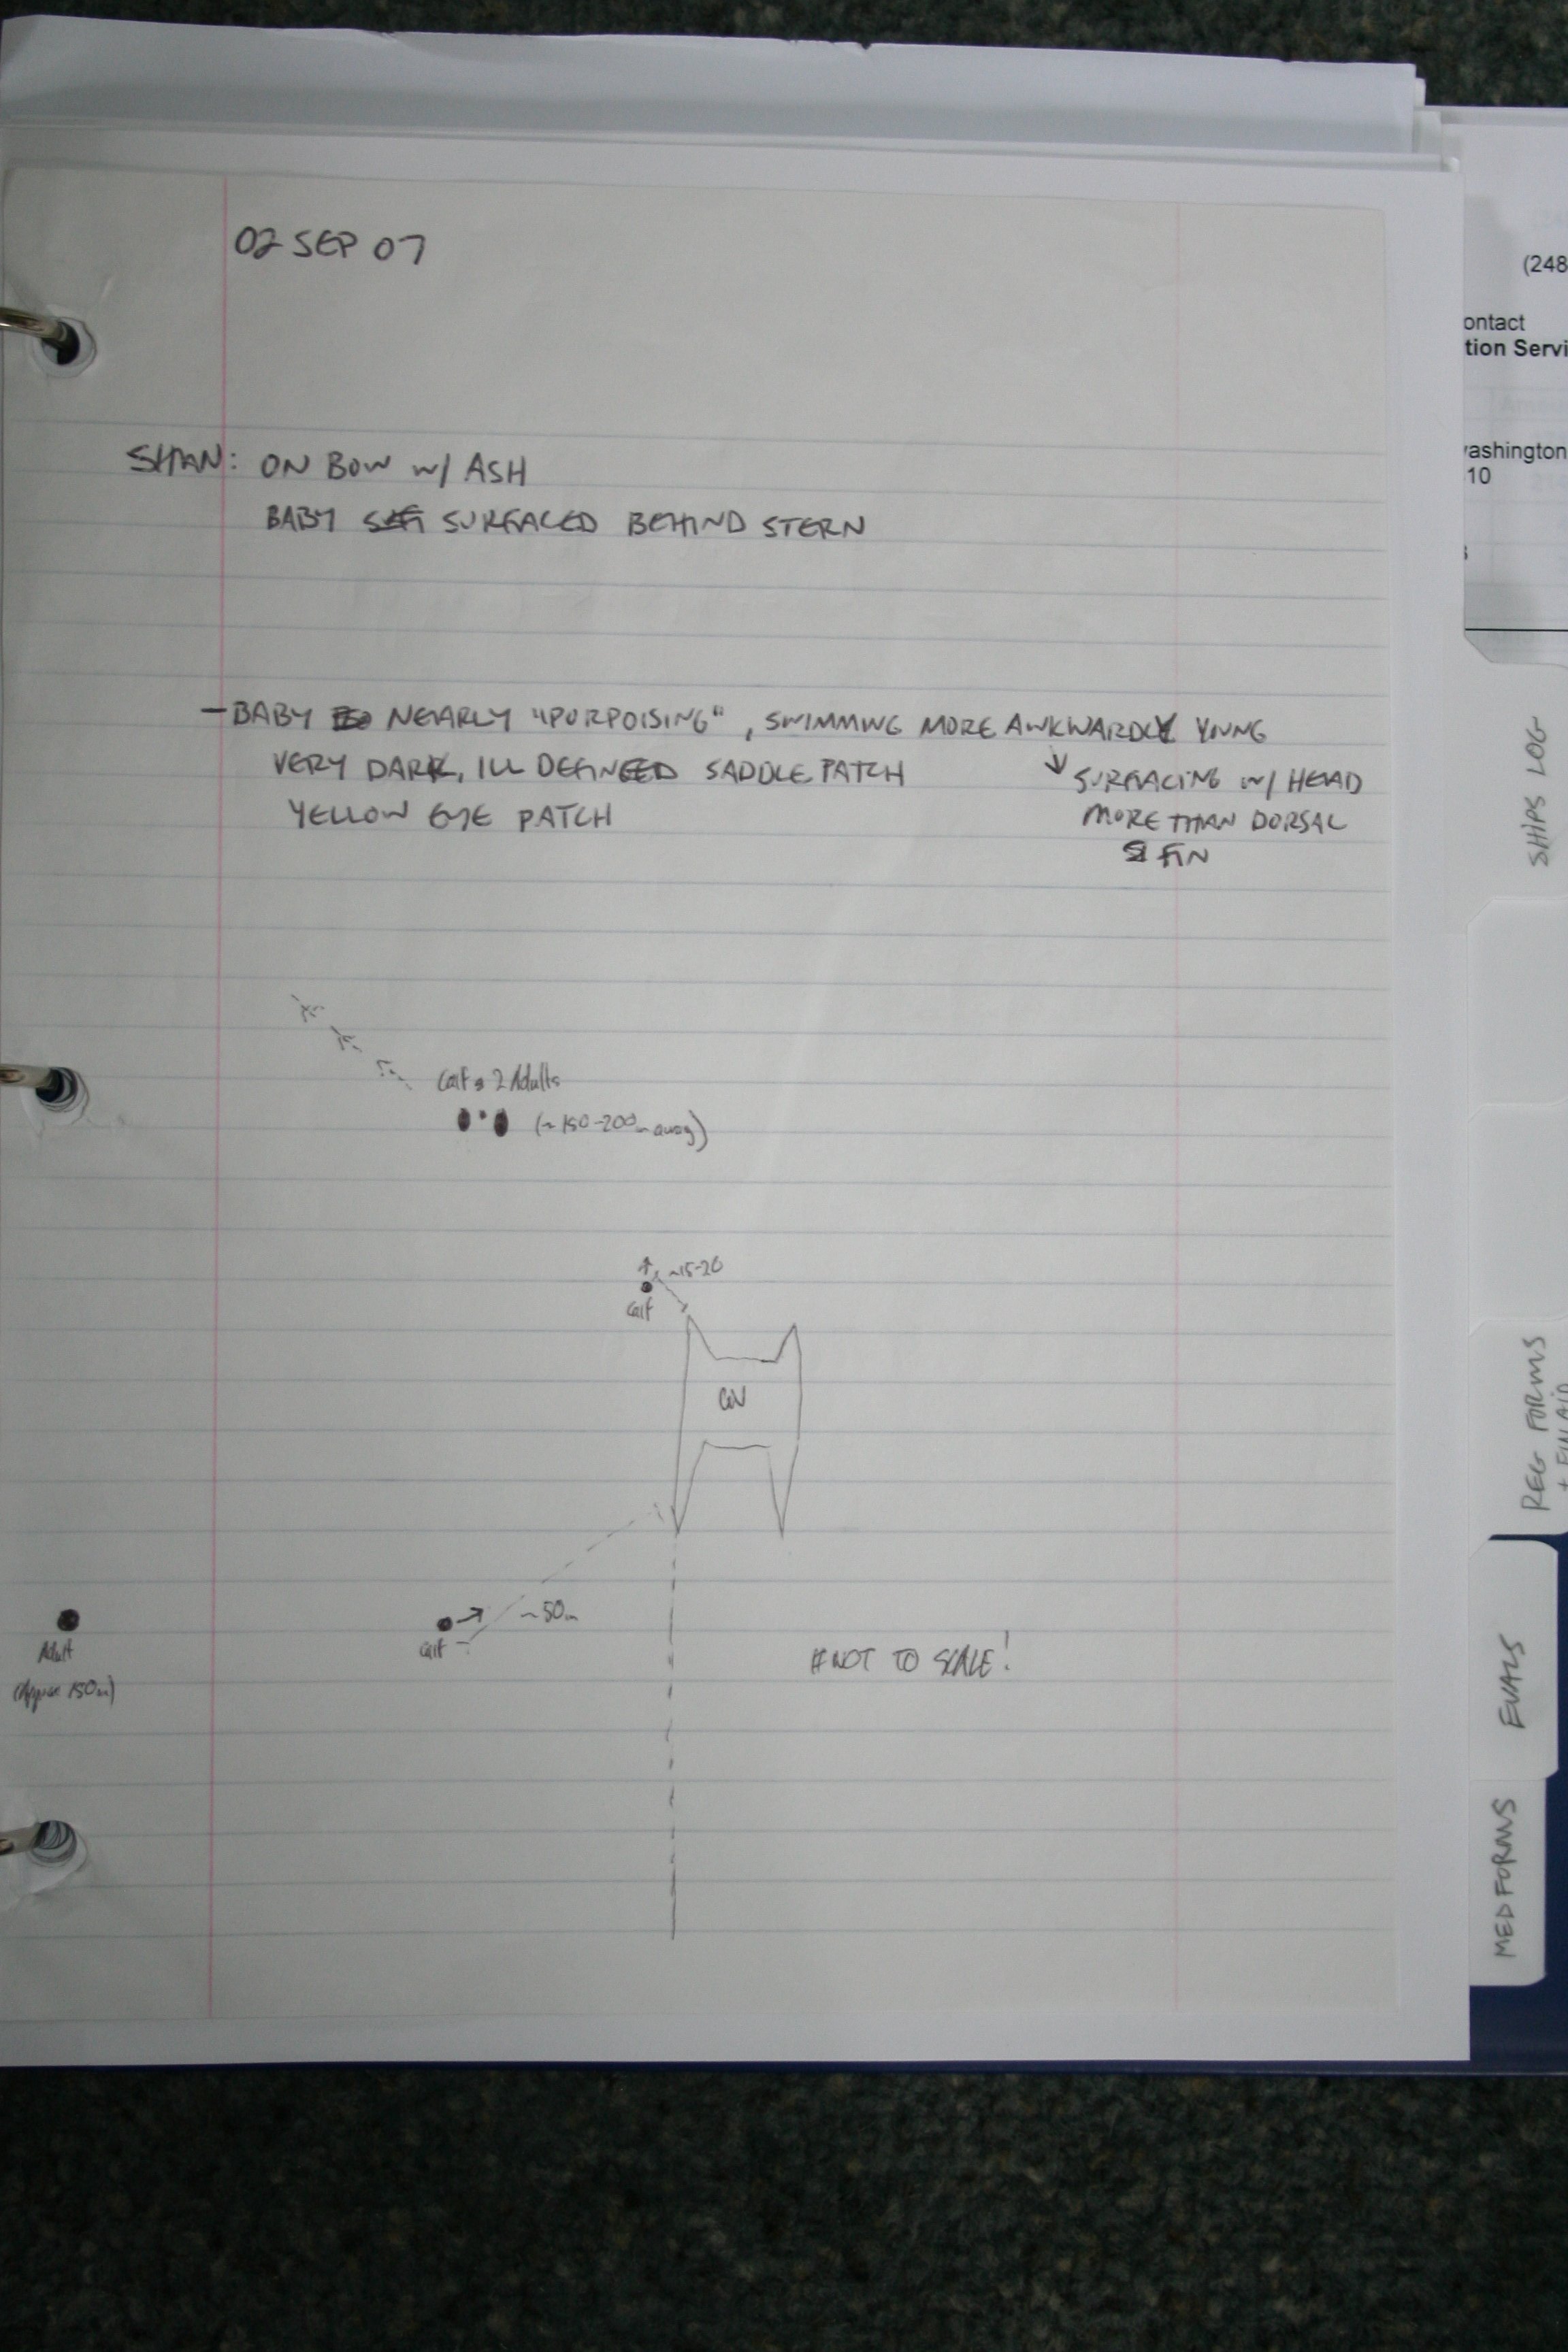 02 SEP 07
SHAN: ON BOW w/ ASH
BABY SURFACED BEHIND STERN
- BABY NEARLY "PORPOISING", SWIMMING MORE AWKWARDLY YOUNG
VERY DARK, ILL DEFINED SADDLE PATCH
YELLOW EYE PATCH
↓ SURFACING w/ HEAD
MORE THAN DORSAL
FIN
Calf & 2 Adults
(~150-200m away)
~15-20
Calf
~50m
Calf
Adult
(Approx 150m)
NOT TO SCALE!
(248
ontact
tion Servi
ashington
10
SHIPS LOG
REG FORMS
+ FIN AID
EVALS
MED FORMS